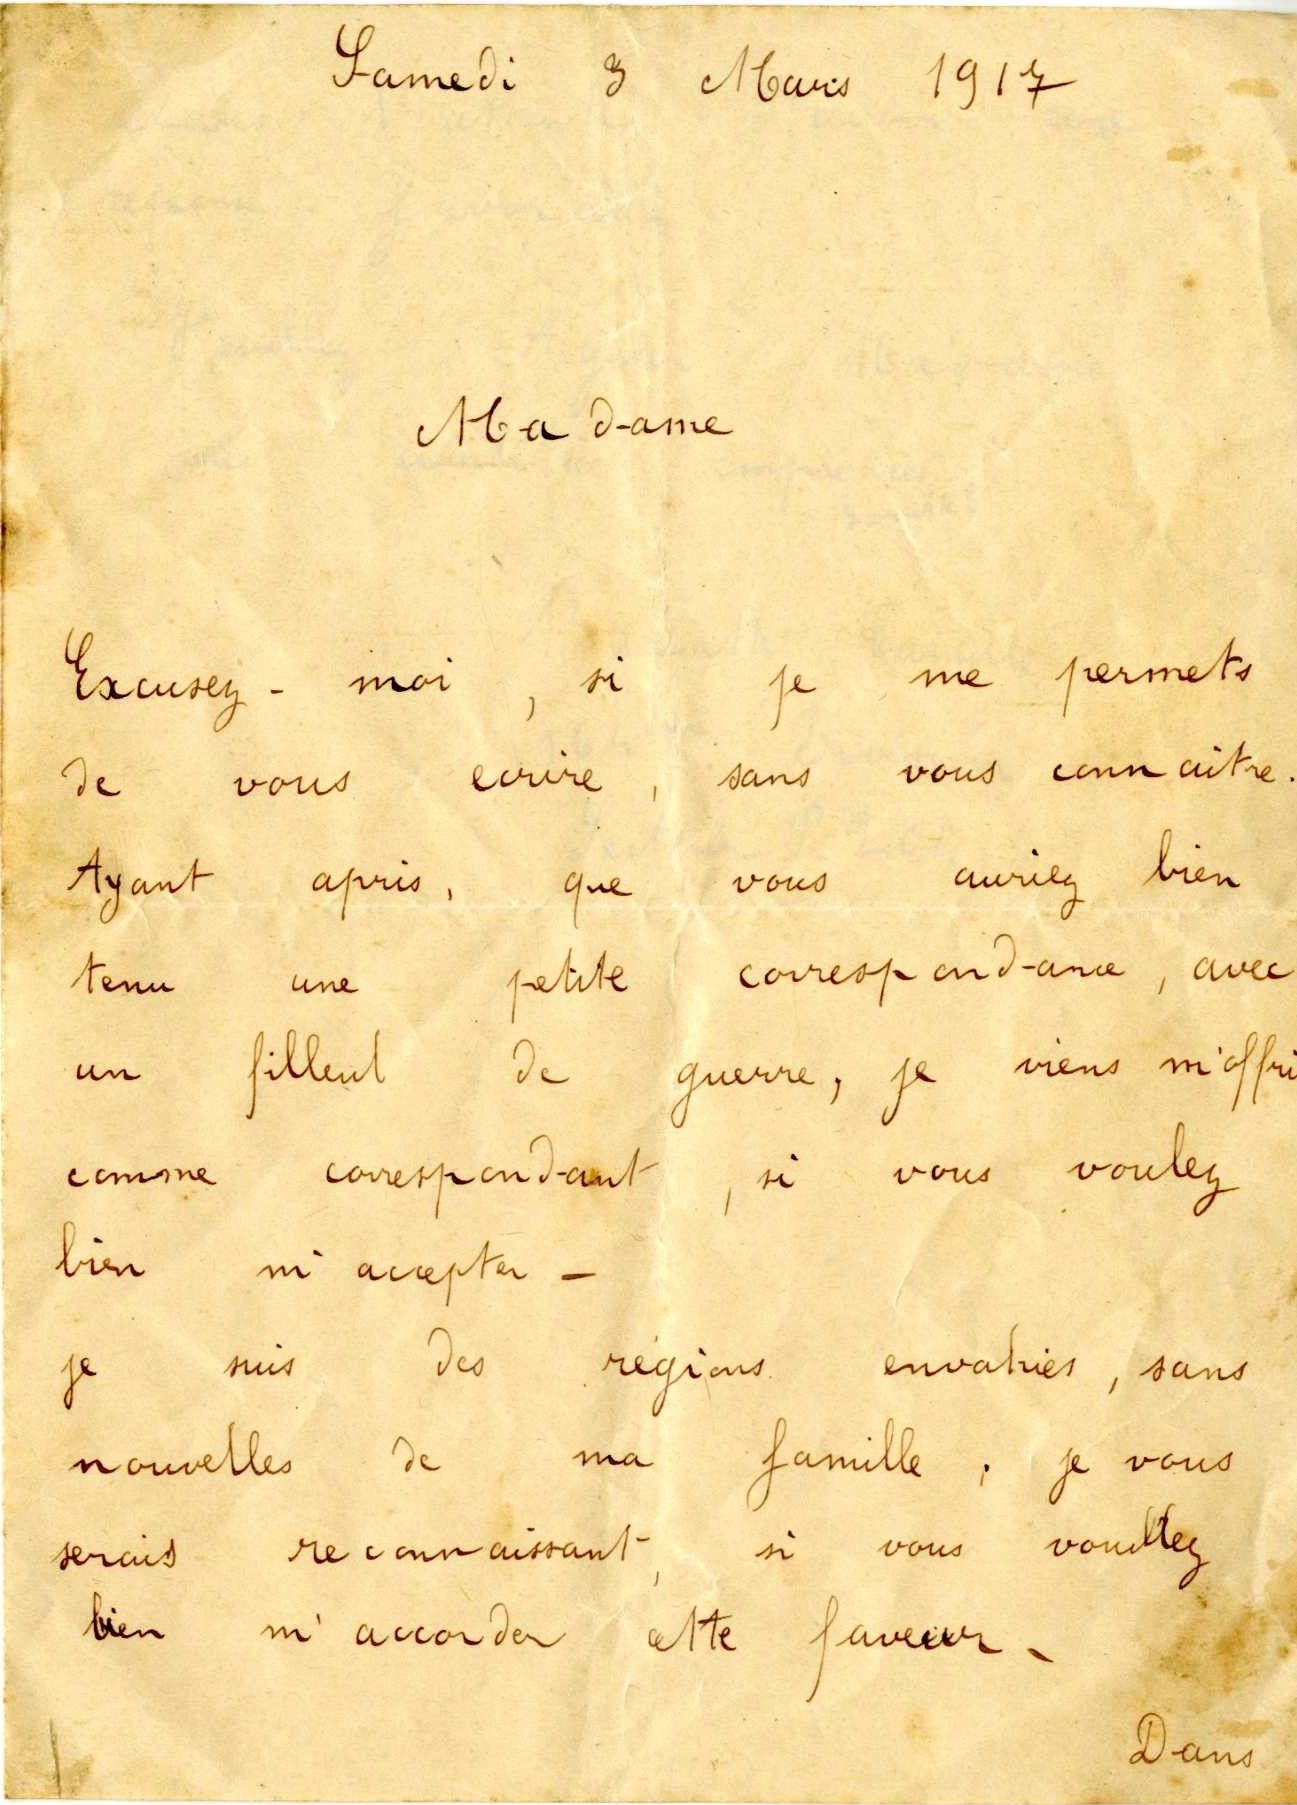 Samedi 3 Mars 1917
Madame
Excusez-moi, si je me permets
de vous ecrire, sans vous connaitre.
Ayant apris, que vous auriez bien
tenu une petite correspondance, avec
un filleul de guerre, je viens m'offri
comme correspondant, si vous voulez
bien m'accepter -
je suis des régions envahies, sans
nouvelles de ma famille, je vous
serais reconnaissant, si vous voulez
bien m'accorder cette faveur -
Dans